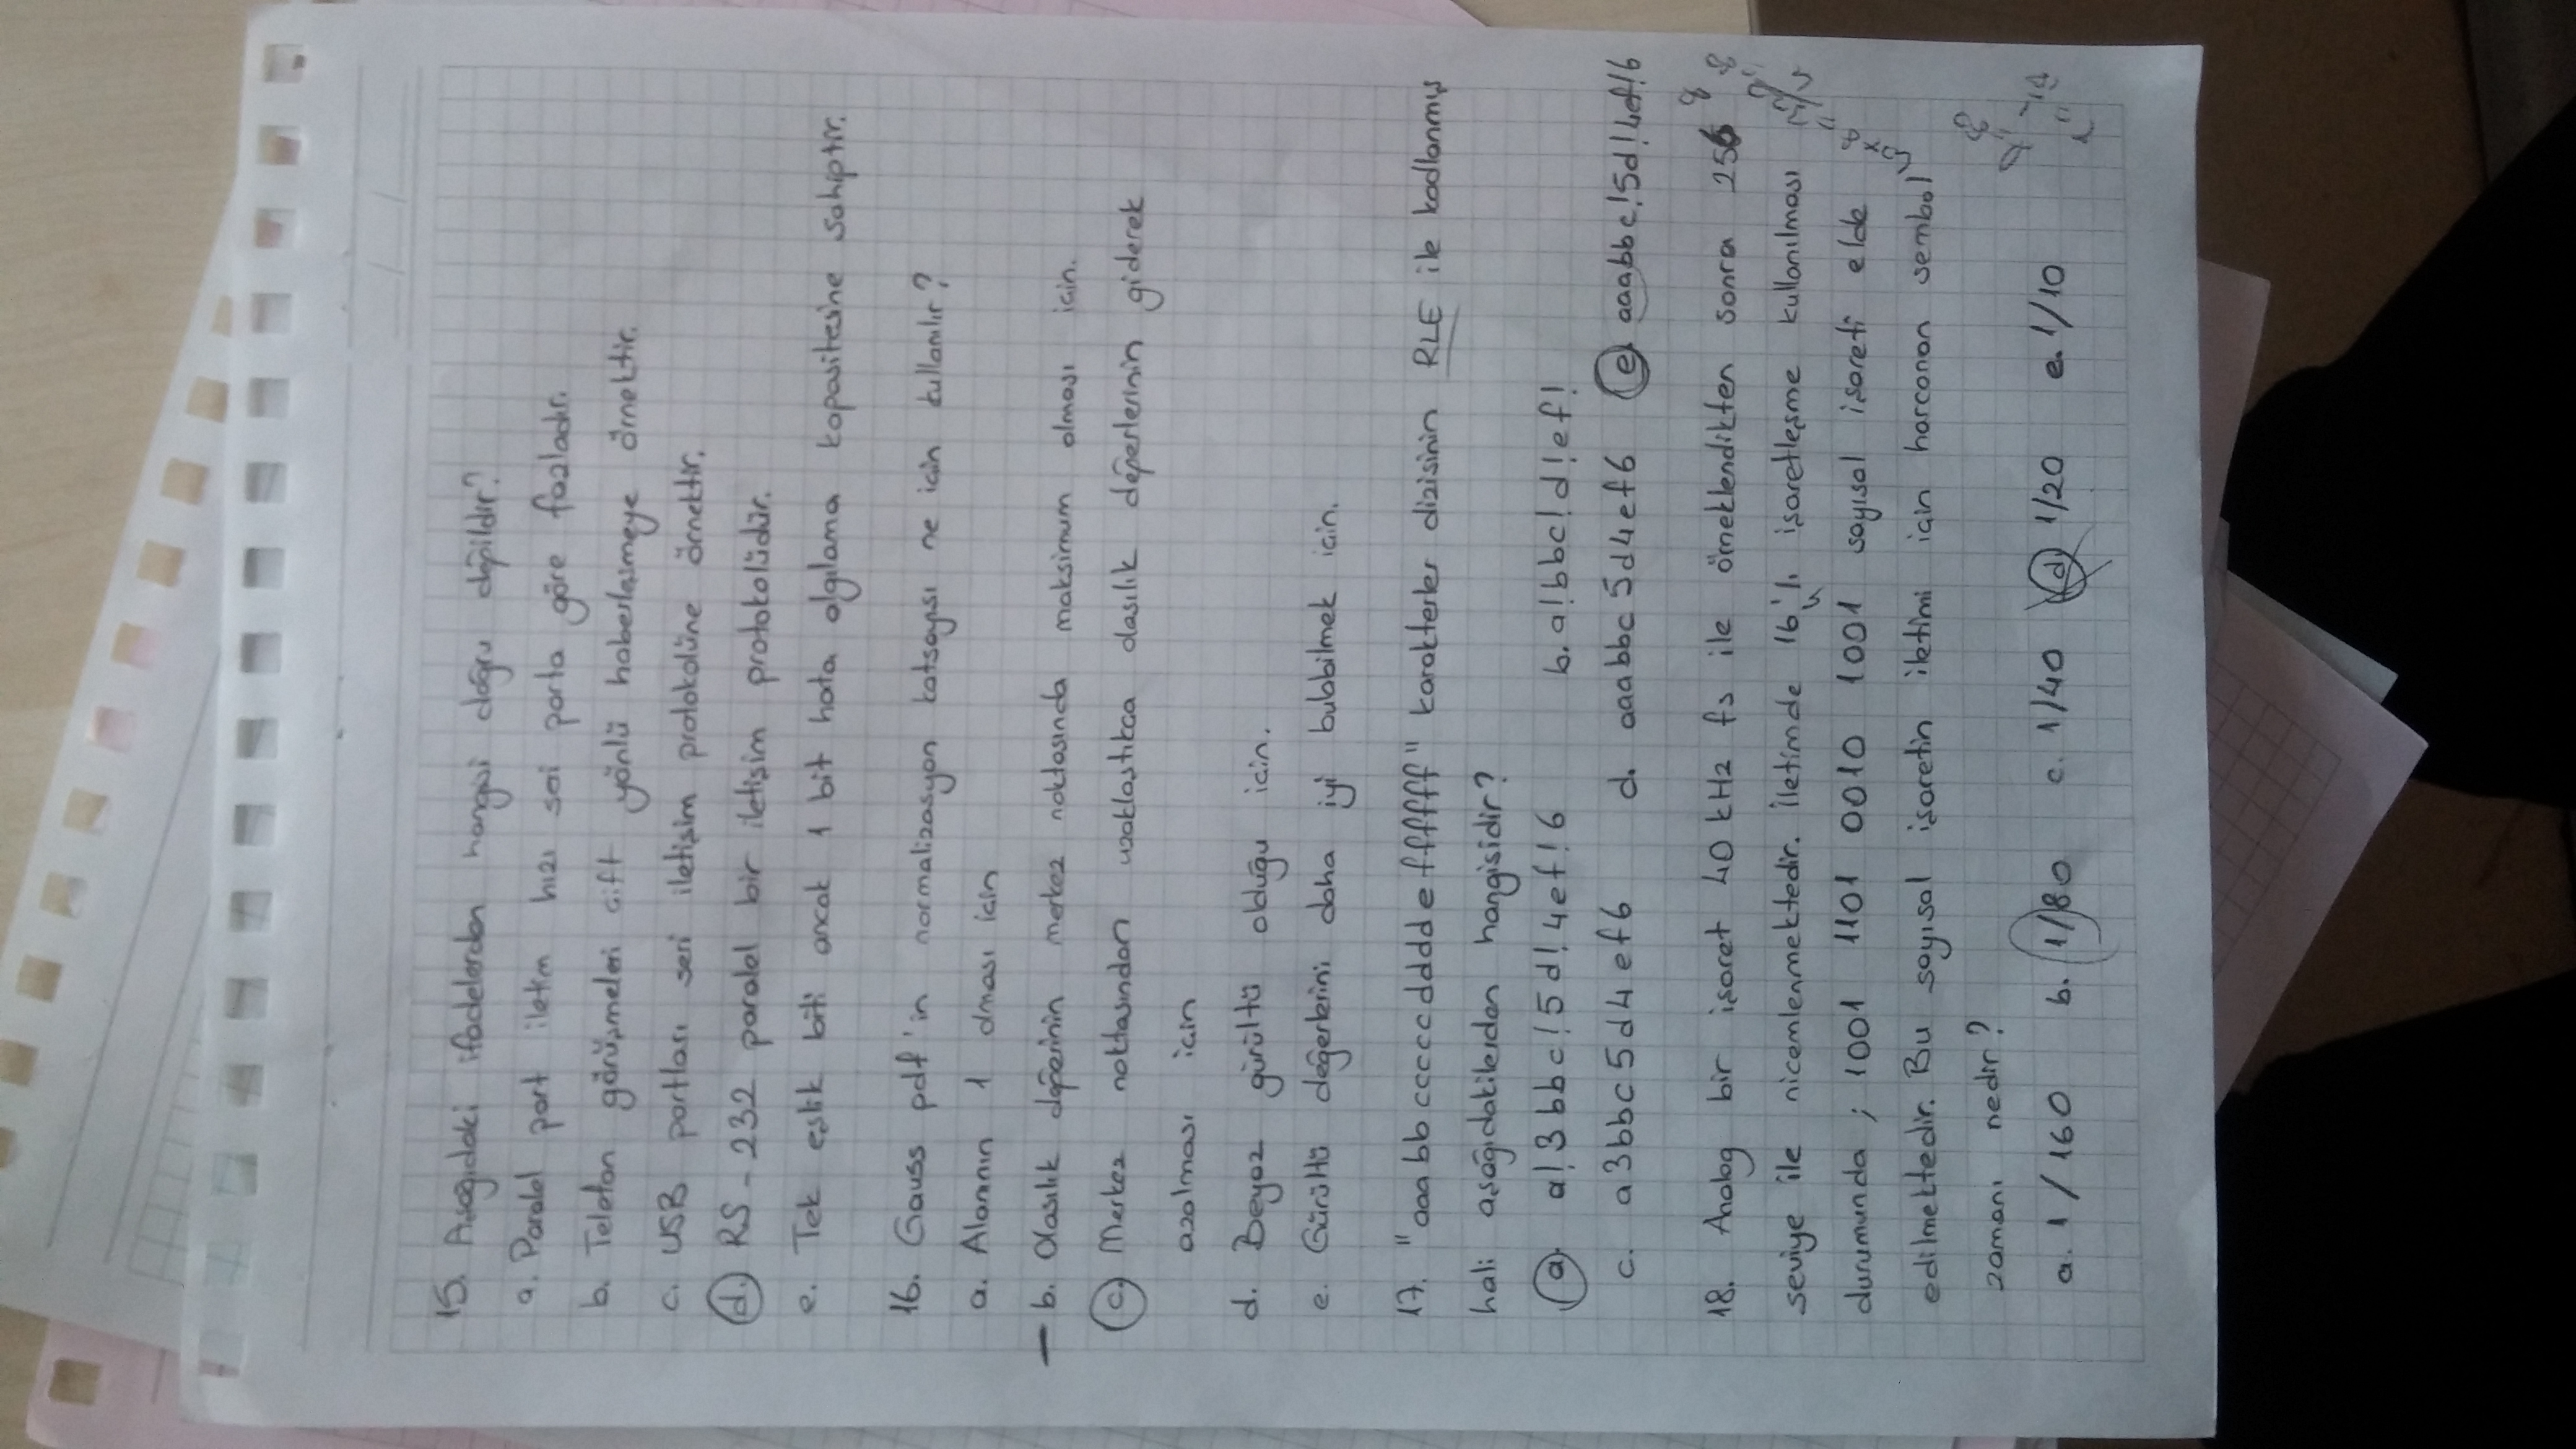 15. Aşağıdaki ifadelerden hangisi doğru değildir?
a. Paralel port iletim hızı seri porta göre fazladır.
b. Telefon görüşmeleri çift yönlü haberleşmeye örnektir.
c. USB portları seri iletişim protokolüne örnektir.
d. RS-232 paralel bir iletişim protokolüdür.
e. Tek eşlik biti ancak 1 bit hata algılama kapasitesine sahiptir.
16. Gauss pdf'in normalizasyon katsayısı ne için kullanılır?
a. Alanının 1 olması için
b. Olasılık değerinin merkez noktasında maksimum olması için.
c. Merkez noktasından uzaklaştıkça olasılık değerlerinin giderek
azalması için
d. Beyaz gürültü olduğu için.
e. Gürültü değerlerini daha iyi bulabilmek için.
17. "aaabbcccccddddeffffff" karakterler dizisinin RLE ile kodlanmış
hali aşağıdakilerden hangisidir?
a. a!3bbc!5d!4ef!6 b. a!bbc!d!ef!
c. a3bbc5d4ef6 d. aaabbc5d4ef6 e. aaabbc!5d!4ef!6
18. Analog bir işaret 40 kHz fs ile örneklendikten sonra 256 8
seviye ile nicemlenmektedir. İletimde 16'lı işaretleşme kullanılması
4
durumunda ; 1001 1101 0010 1001 sayısal işareti elde
edilmektedir. Bu sayısal işaretin iletimi için harcanan sembol
zamanı nedir?
a. 1/160 b. 1/80 c. 1/40 d. 1/20 e. 1/10